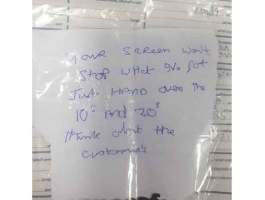 your screen won't
stop what I've got
Just HAND over the
10s and 20s
think about the
customers